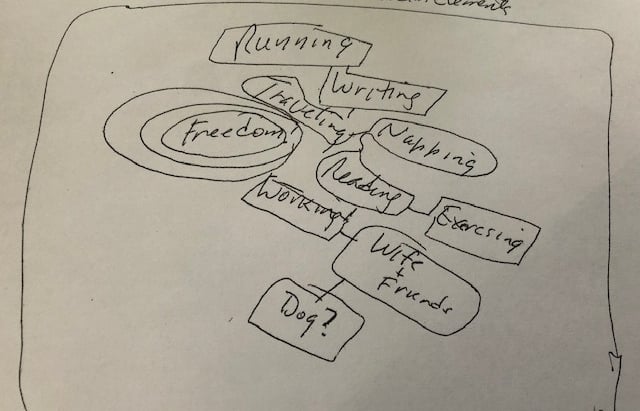 Elements
Running
Writing
Traveling
Freedom!
Napping
Reading
Working!
Exercsing
Wife
+
Friends
Dog?